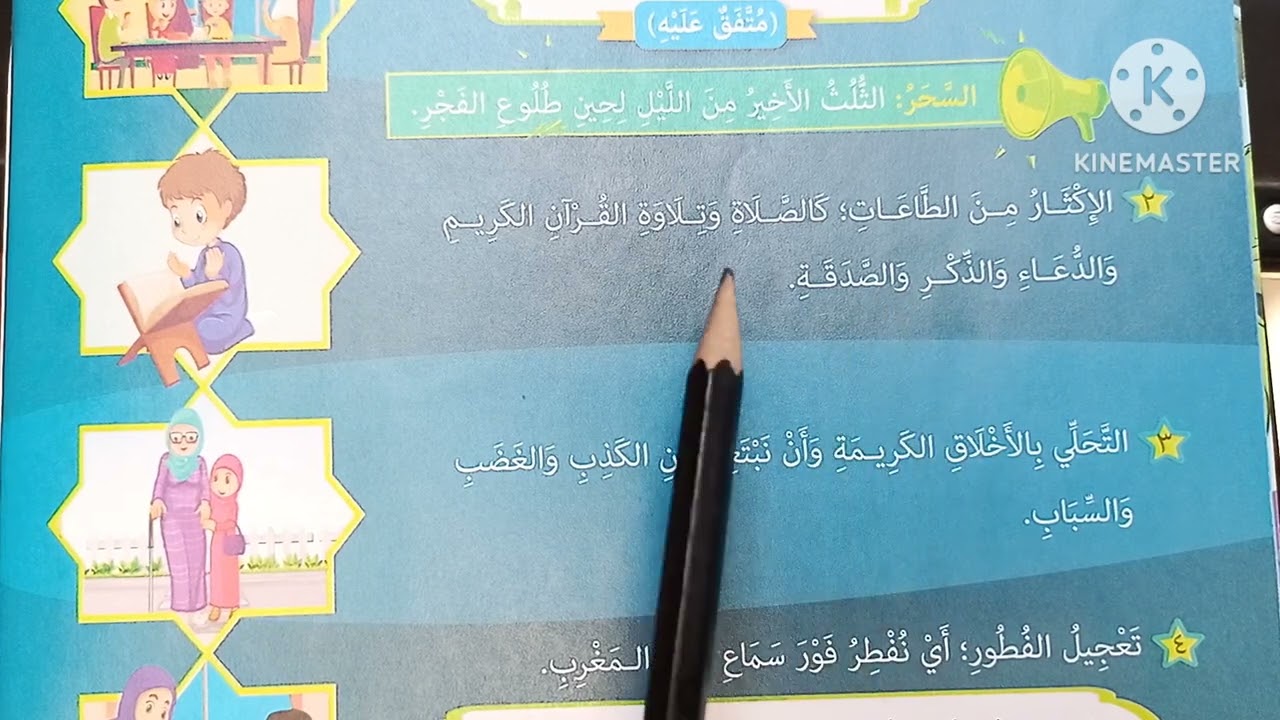 (مُتَّفَقٌ عَلَيْهِ)
السَّحَرُ: الثُّلُثُ الأَخِيرُ مِنَ اللَّيْلِ لِحِينِ طُلُوعِ الفَجْرِ.
K
KINEMASTER
٢ الإِكْثَارُ مِنَ الطَّاعَاتِ؛ كَالصَّلَاةِ وَتِلَاوَةِ القُرْآنِ الكَرِيمِ
وَالدُّعَاءِ وَالذِّكْرِ وَالصَّدَقَةِ.
٣ التَّحَلِّي بِالأَخْلَاقِ الكَرِيمَةِ وَأَنْ الكَذِبِ وَالغَضَبِ
وَالسِّبَابِ.
٤ تَعْجِيلُ الفُطُورِ؛ أَيْ نُفْطِرُ فَوْرَ سَمَاعِ المَغْرِبِ.